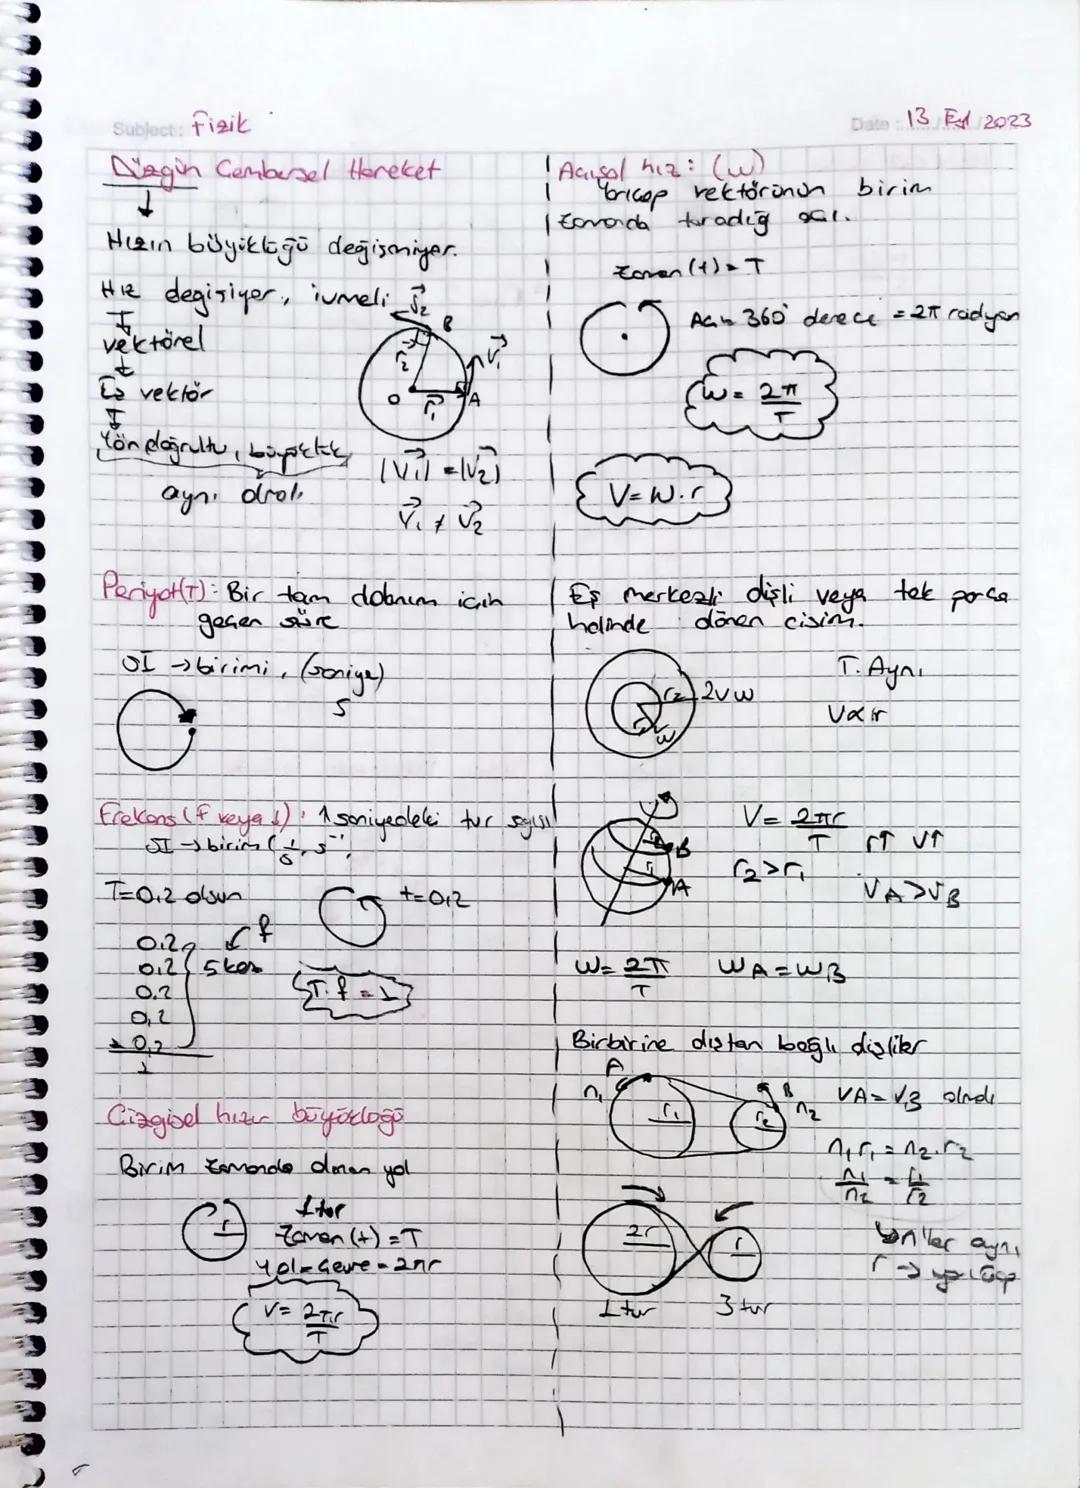 Subject: Fizik
Date: 13 Eyl 2023
Düzgün Çembersel Hareket
Hızın büyüklüğü değişmiyor.
Hız değişiyor, ivmeli
vektörel
Eş vektör
Yön doğrultu, büyüklük
aynı olmalı
V₂
B
r₂
V₁
O
r₁
A
|V₁| = |V₂|
V₁ ≠ V₂
Periyot(T): Bir tam dolanım için
geçen süre
SI → birimi, (saniye)
s
Frekans (f veya ): 1 saniyedeki tur sayısı
SI → birim (1/s, s⁻¹,
T=0,2 olsun
t=0,2
f
0,2
0,2 5 kez
0.2
0,2
+ 0,2
1
T.f = 1
Çizgisel hızın büyüklüğü
Birim zamanda alınan yol
r
1 tur
Zaman (t) = T
Yol = Çevre = 2πr
V = 2πr/T
Açısal hız: (w)
Yarıçap vektörünün birim
zamanda taradığı açı.
zaman (t) = T
Açı = 360° derece = 2π radyan
w = 2π/T
V = w.r
Eş merkezli dişli veya tek parça
halinde dönen cisim.
r₂ 2v w
w
T. Aynı
V∝r
B
A
V = 2πr/T
r↑ v↑
r₂>r₁
VA>VB
w = 2π/T
wA = wB
Birbirine dıştan bağlı dişliler
A
n₁
r₁
B
r₂
n₂
VA = VB olmalı
n₁r₁ = n₂.r₂
n₁/n₂ = r₁/r₂
2r
r
1 tur
3 tur
Yönler aynı
r → yarıçap